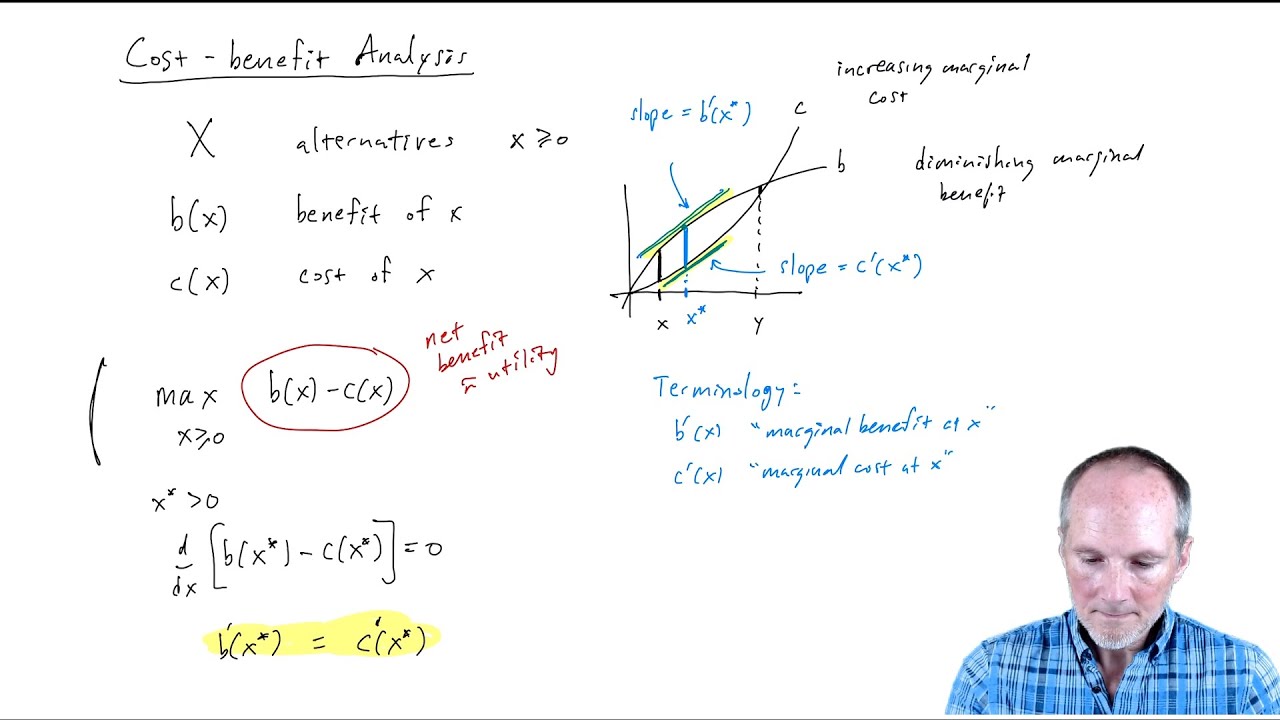 Cost-benefit Analysis
X alternatives x ⩾ 0
b(x) benefit of x
c(x) cost of x
max b(x) - c(x)
x ⩾ 0
net
benefit
≈ utility
x* > 0
d/dx [b(x*) - c(x*)] = 0
b'(x*) = c'(x*)
increasing marginal
cost
slope = b'(x*)
c
b
diminishing marginal
benefit
slope = c'(x*)
x x* y
Terminology:
b'(x) "marginal benefit at x"
c'(x) "marginal cost at x"